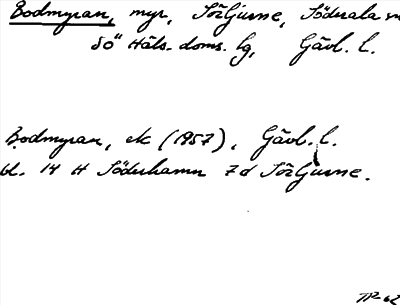 Bodmyran, myr, Sörljusne, Söderala sn
SÖ Häls. doms. lg, Gävl. l.
Bodmyran, ek (1957), Gävl. l.
bl. 14 H Söderhamn 7d Sörljusne.